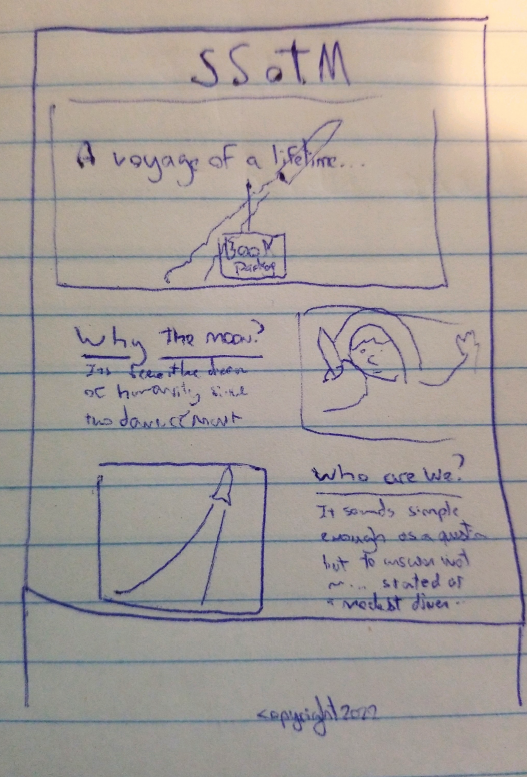 SSotM
A voyage of a lifetime...
BOOK
Why the moon?
Its been the dream
of humanity since
the dawn of
Who are we?
It sounds simple
enough as a
but to answer
stated as
a modest
copyright 2022